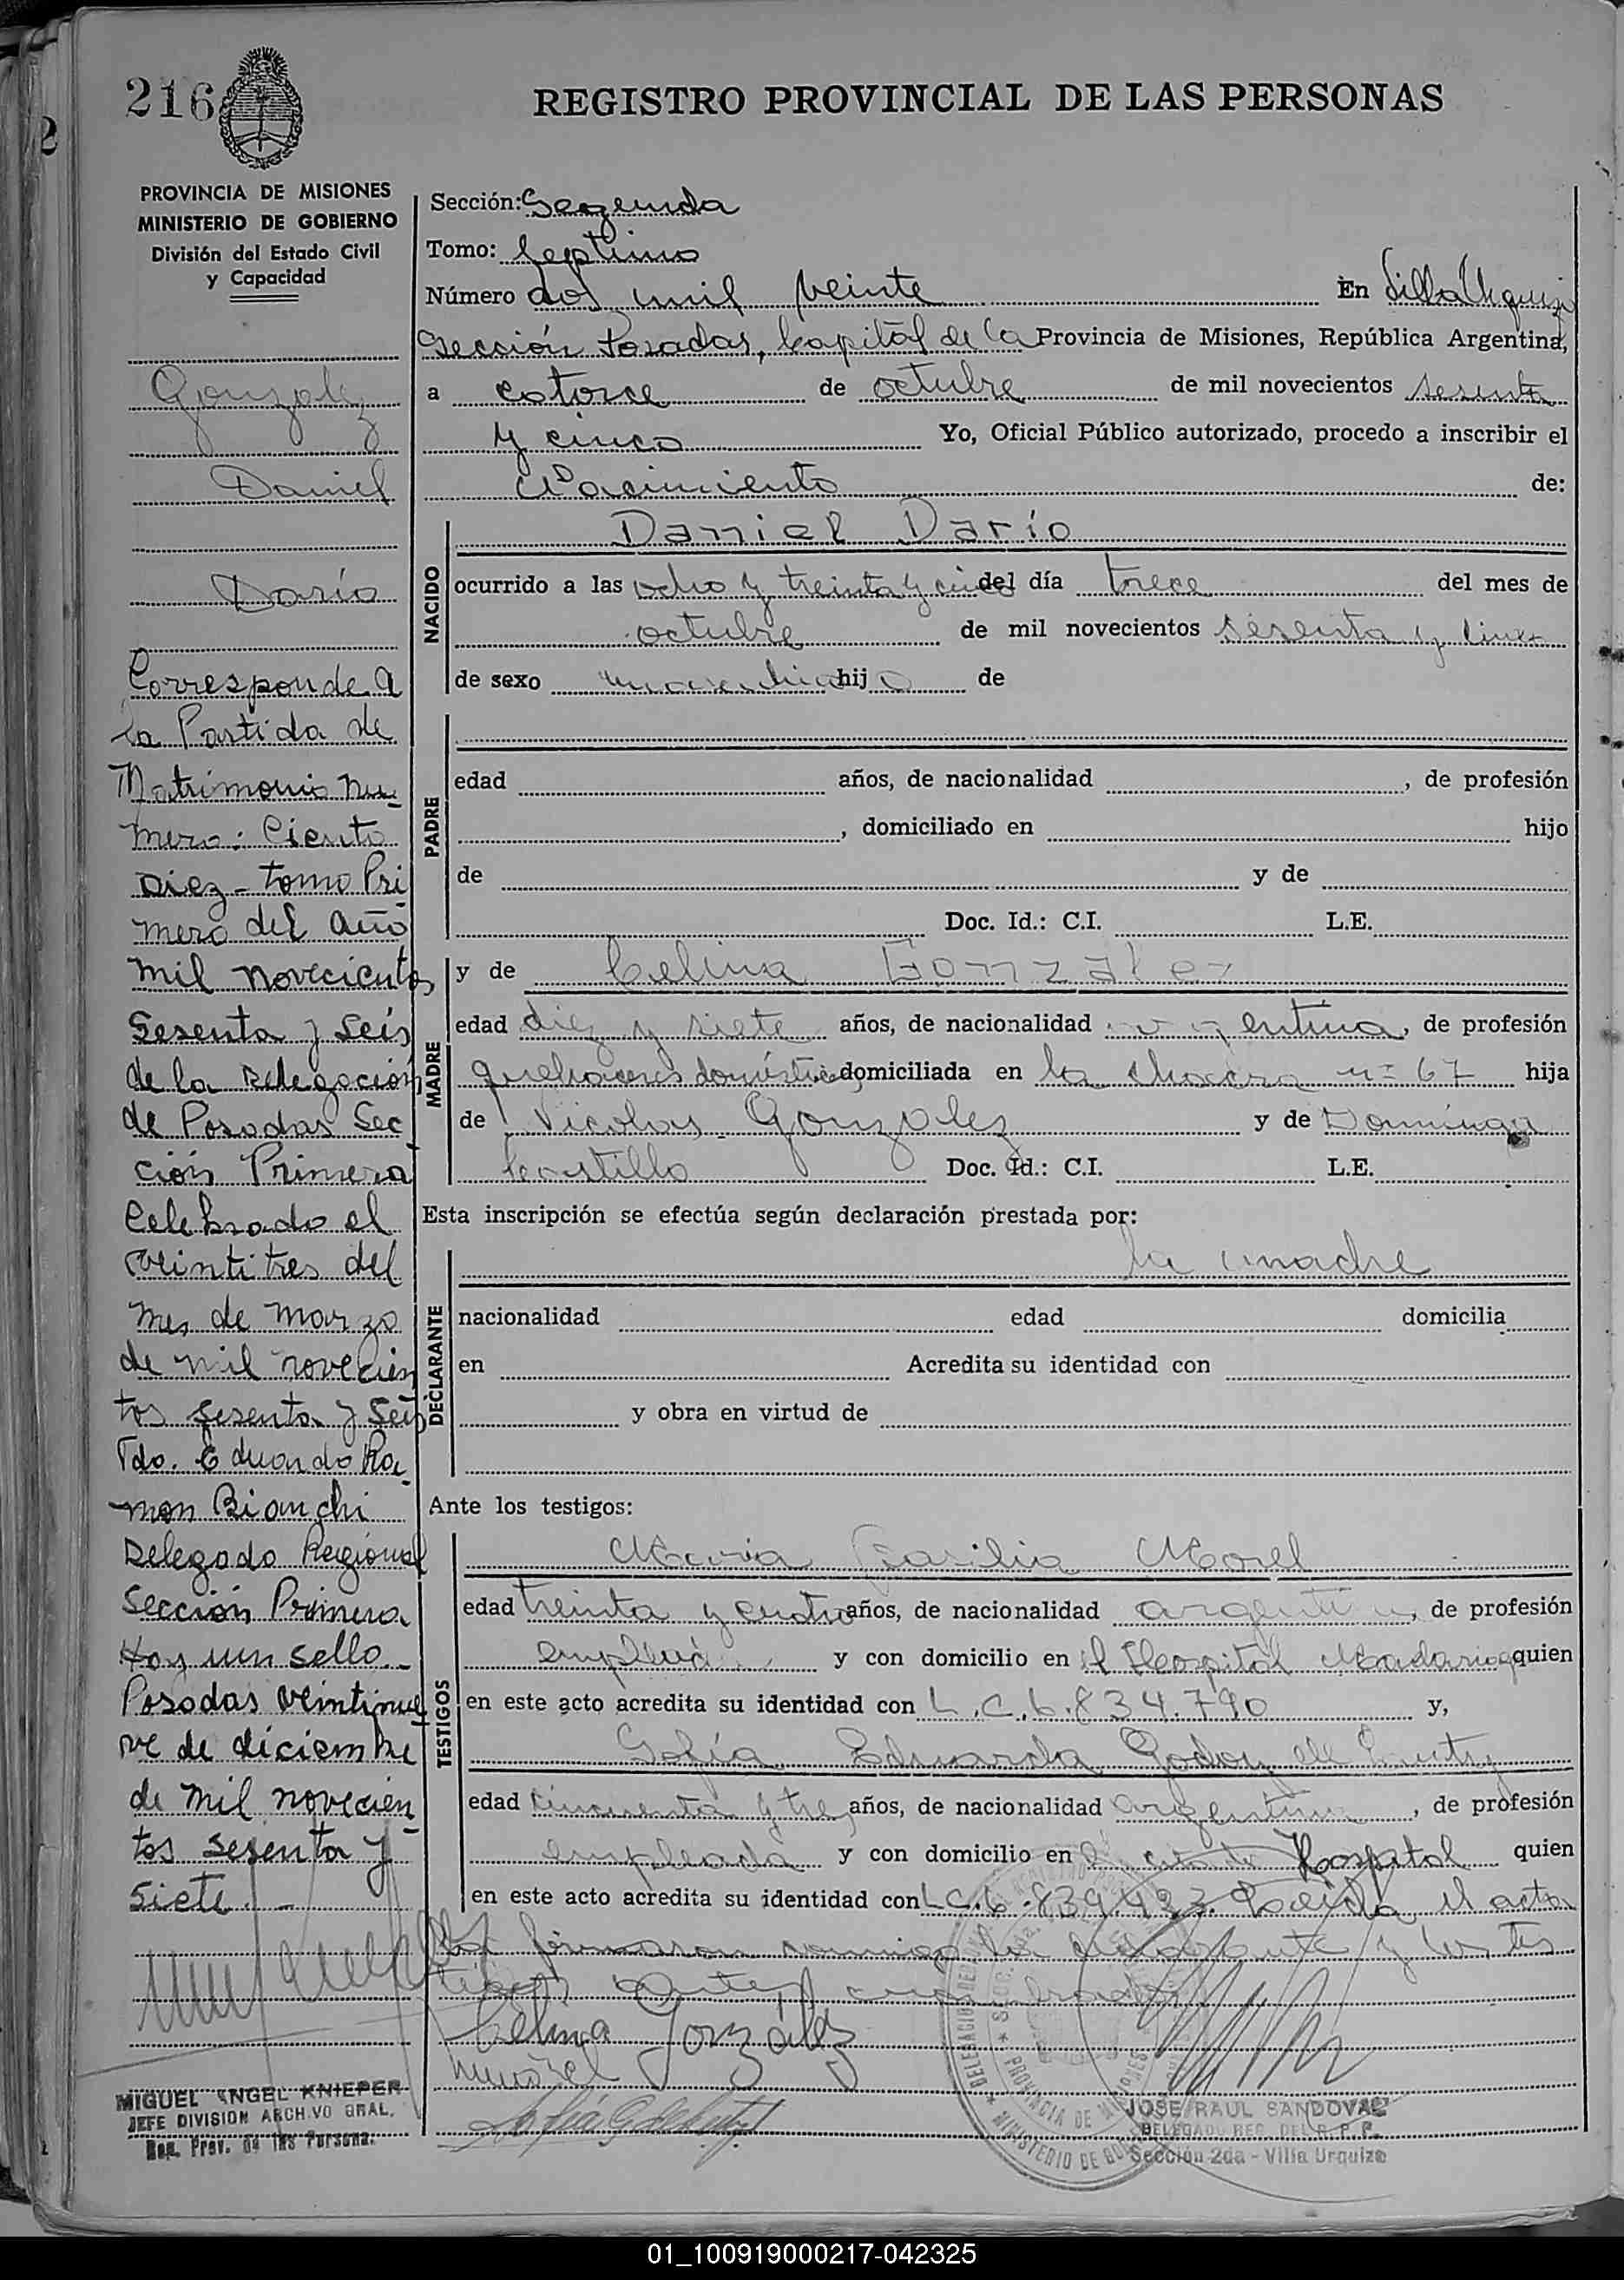 216
REGISTRO PROVINCIAL DE LAS PERSONAS
PROVINCIA DE MISIONES
MINISTERIO DE GOBIERNO
División del Estado Civil
y Capacidad
Gonzalez
Daniel
Darío
Corresponde a
la Partida de
Matrimonio nu-
mero: Ciento
Diez - tomo Pri
mero del año
mil novecientos
Sesenta y Seis
de la Delegación
de Posadas Sec
ción Primera
Celebrado el
veintitres del
mes de marzo
de mil novecien
tos sesenta y seis
Fdo. Eduardo Ra-
mon Bianchi
Delegado Regional
Sección Primera
Hay un sello.-
Posadas veintinue
ve de diciembre
de mil novecien
tos sesenta y
siete.-
MIGUEL ANGEL KNIEPER
JEFE DIVISION ARCH.VO GRAL.
Reg. Prov. de las Persona.
Sección: Segunda
Tomo: Septimo
Número dos mil veinte En Villa Urquiza
Sección Posadas, Capital de la Provincia de Misiones, República Argentina,
a catorce de octubre de mil novecientos sesenta
y cinco Yo, Oficial Público autorizado, procedo a inscribir el
Nacimiento de:
NACIDO
Daniel Darío
ocurrido a las ocho y treinta y cinco del día trece del mes de
octubre de mil novecientos sesenta y cinco
de sexo masculino hijo de
PADRE
edad años, de nacionalidad , de profesión
, domiciliado en hijo
de y de
Doc. Id.: C.I. L.E.
MADRE
y de Celina Gonzalez
edad diez y siete años, de nacionalidad argentina, de profesión
quehaceres domésticos, domiciliada en la chacra nº 67 hija
de Nicolas Gonzalez y de Dominga
Castillo Doc. Id.: C.I. L.E.
Esta inscripción se efectúa según declaración prestada por:
DECLARANTE
la madre
nacionalidad edad domicilia
en Acredita su identidad con
y obra en virtud de
Ante los testigos:
TESTIGOS
Maria Basilia Morel
edad treinta y cuatro años, de nacionalidad argentina, de profesión
empleada y con domicilio en el Hospital Madariaga quien
en este acto acredita su identidad con L.C. 6.834.790 y,
Sofía Eduarda Godoy de
edad cincuenta y tres años, de nacionalidad argentina, de profesión
empleada y con domicilio en el citado Hospital quien
en este acto acredita su identidad con L.C. 6.839.423. Leida el acta
firmaron conmigo la declarante y los tes
tigos antes nombrados
Celina González
JOSE RAUL SANDOVAL
DELEGADO REG. DEL R. P. P.
Sección 2da - Villa Urquiza
01_100919000217-042325